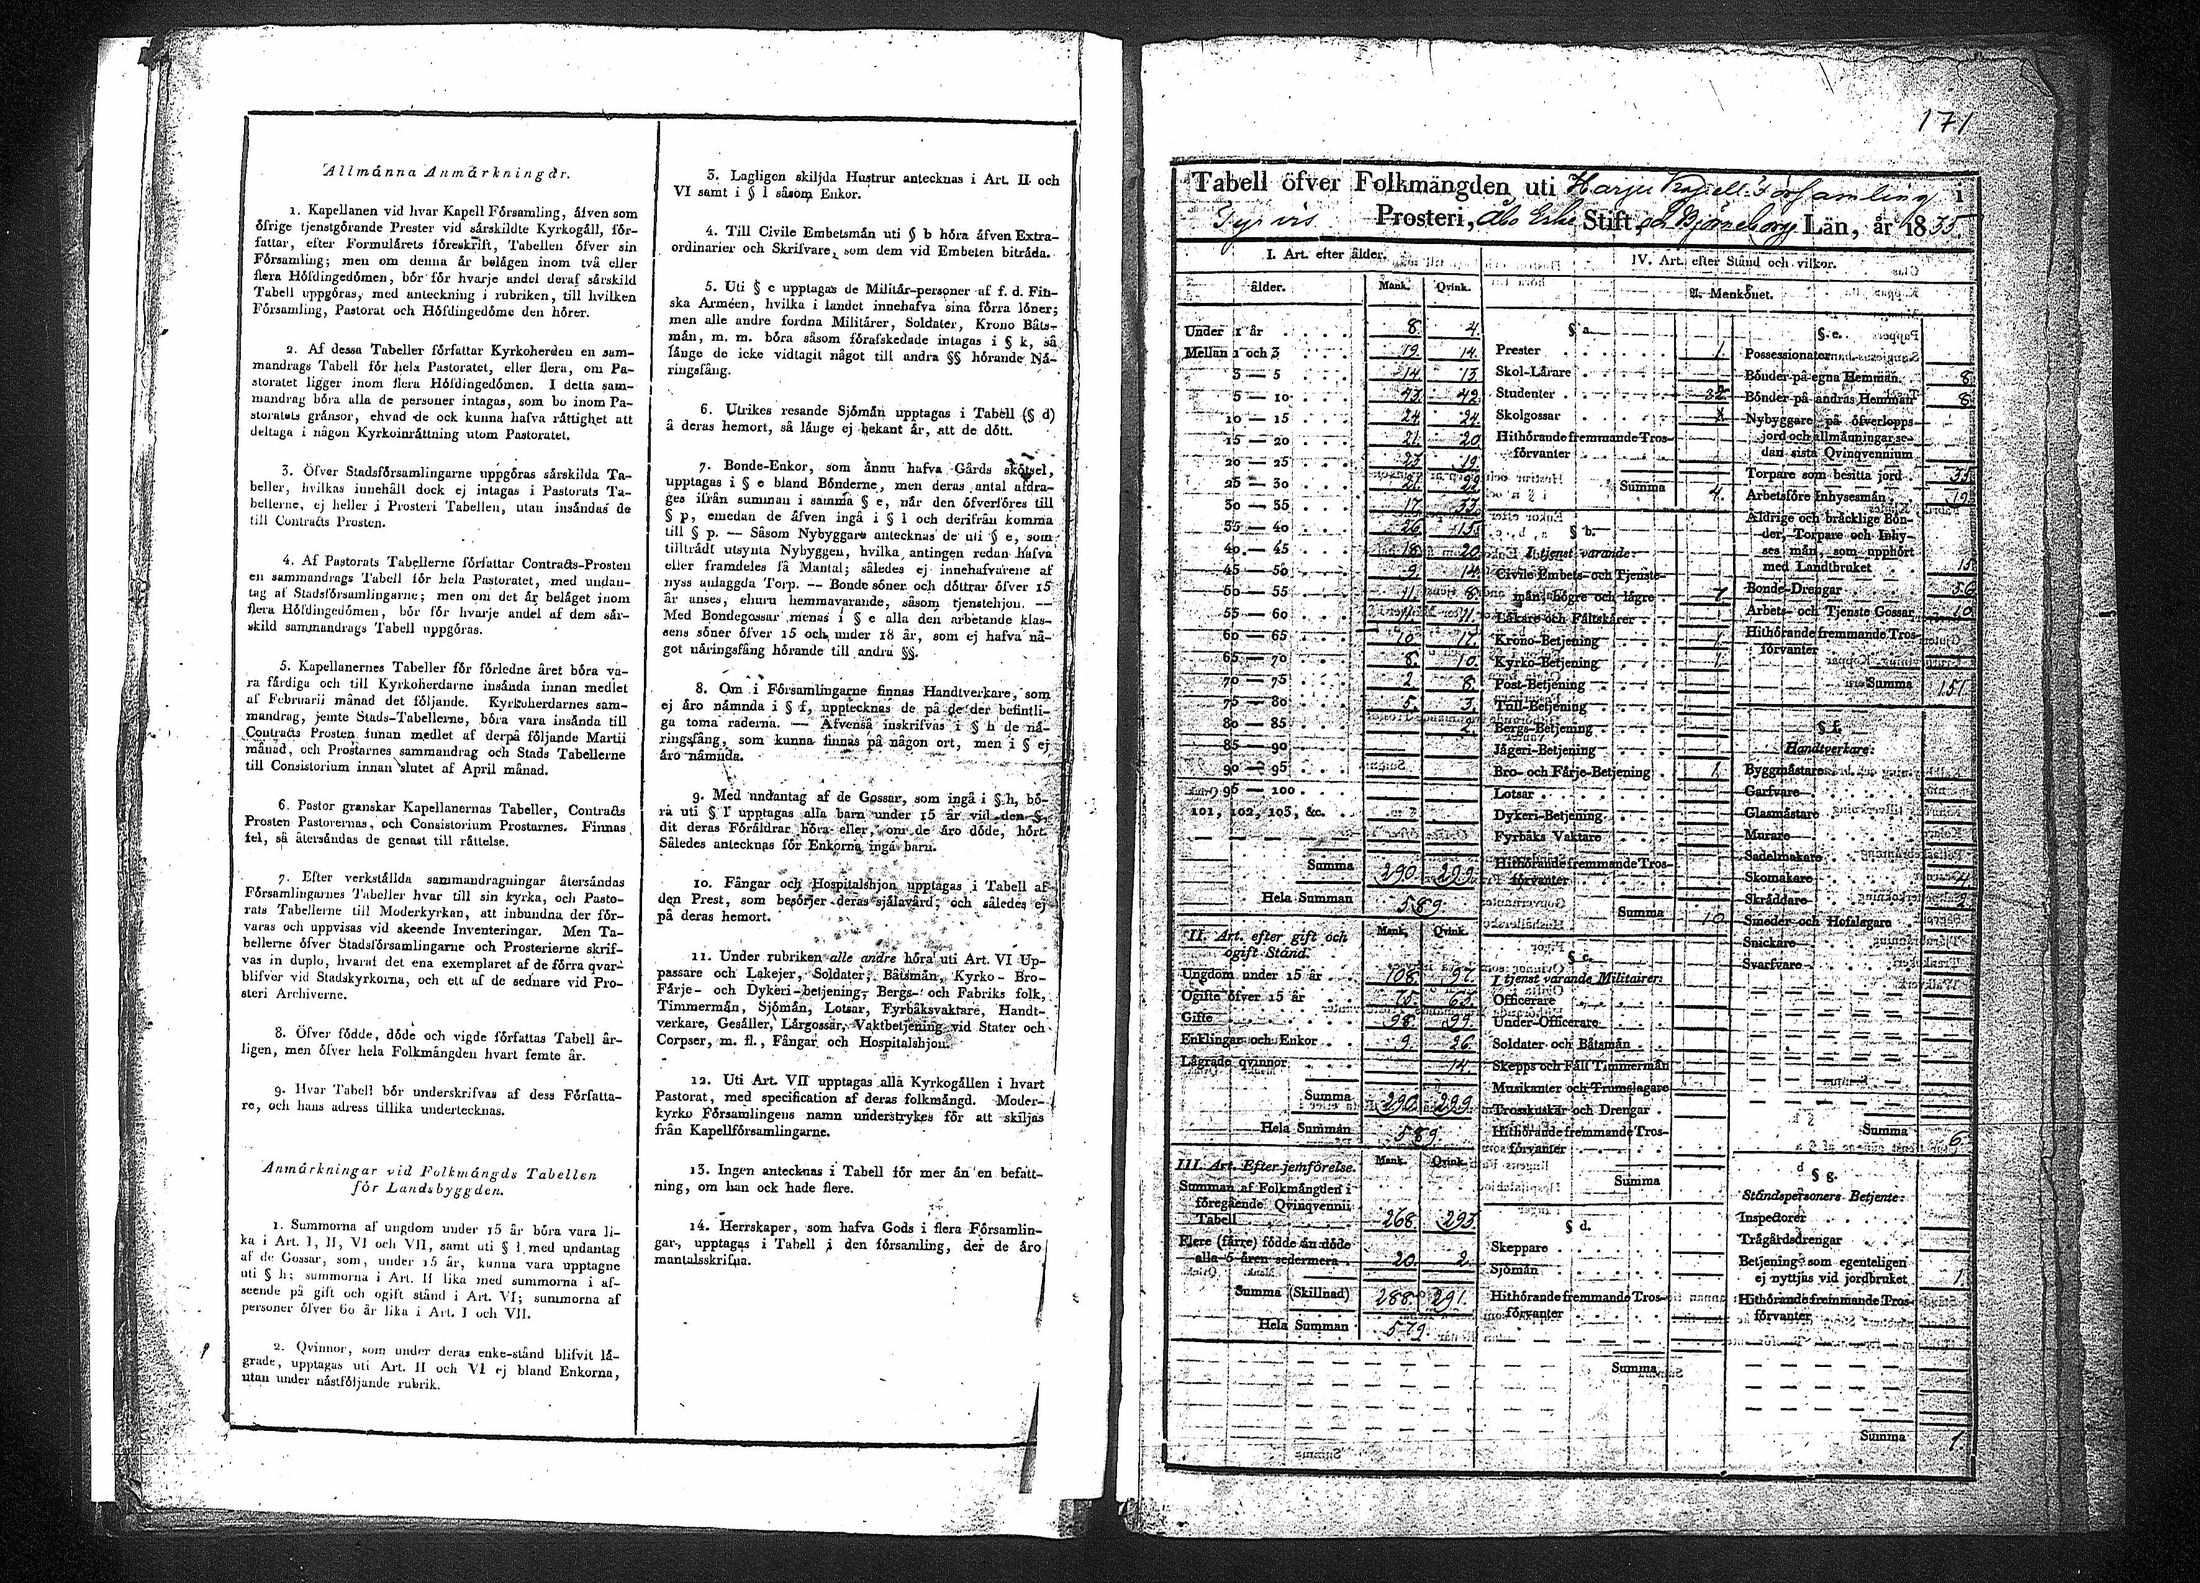 Allmänna Anmärkningar.
1. Kapellanen vid hvar Kapell Församling, åfven som
öfrige tjenstgörande Prester vid särskildte Kyrkogåll, för-
fattar, efter Formulärets föreskrift, Tabellen öfver sin
Församling; men om denna är belågen inom två eller
flera Höfdingedömen, bör för hvarje andel deraf särskild
Tabell uppgöras, med anteckning i rubriken, till hvilken
Församling, Pastorat och Höfdingedöme den hörer.
2. Af dessa Tabeller författar Kyrkoherden en sam-
mandrags Tabell för hela Pastoratet, eller flera, om Pa-
storatet ligger inom flera Höfdingedömen. I detta sam-
mandrag böra alla de personer intagas, som bo inom Pa-
storatets gränsor, ehvad de ock kunna hafva rättighet att
deltaga i någon Kyrkoinrättning utom Pastoratet.
3. Öfver Stadsförsamlingarne uppgöras särskilda Ta-
beller, hvilkas innehåll dock ej intagas i Pastorats Ta-
bellerne, ej heller i Prosteri Tabellen, utan insändas de
till Contracts Prosten.
4. Af Pastorats Tabellerne författar Contracts-Prosten
en sammandrags Tabell för hela Pastoratet, med undan-
tag af Stadsförsamlingarne; men om det är beläget inom
flera Höfdingedömen, bör för hvarje andel af dem sär-
skild sammandrags Tabell uppgöras.
5. Kapellanernes Tabeller för förledne året böra va-
ra färdiga och till Kyrkoherdarne insända innan medlet
af Februarii månad det följande. Kyrkoherdarnes sam-
mandrag, jemte Stads-Tabellerne, böra vara insända till
Contracts Prosten innan medlet af derpå följande Martii
månad, och Prostarnes sammandrag och Stads Tabellerne
till Consistorium innan slutet af April månad.
6. Pastor granskar Kapellanernas Tabeller, Contracts
Prosten Pastorernas, och Consistorium Prostarnes. Finnas
fel, så återsändas de genast till rättelse.
7. Efter verkställda sammandragningar återsändas
Församlingarnes Tabeller hvar till sin kyrka, och Pasto-
rats Tabellerne till Moderkyrkan, att inbundna der för-
varas och uppvisas vid skeende Inventeringar. Men Ta-
bellerne öfver Stadsförsamlingarne och Prosterierne skrif-
vas in duplo, hvaraf det ena exemplaret af de förra qvar-
blifver vid Stadskyrkorna, och ett af de sednare vid Pro-
steri Archiverne.
8. Öfver födde, döde och vigde författas Tabell år-
ligen, men öfver hela Folkmängden hvart femte år.
9. Hvar Tabell bör underskrifvas af dess Författa-
re, och hans adress tillika undertecknas.
Anmärkningar vid Folkmängds Tabellen
för Landsbyggden.
1. Summorna af ungdom under 15 år böra vara li-
ka i Art. I, II, VI och VII, samt uti § l med undantag
af de Gossar, som, under 15 år, kunna vara upptagne
uti § h; summorna i Art. II lika med summorna i af-
seende på gift och ogift stånd i Art. VI; summorna af
personer öfver 60 år lika i Art. I och VII.
2. Qvinnor, som under deras enke-stånd blifvit lä-
grade, upptagas uti Art. II och VI ej bland Enkorna,
utan under nästföljande rubrik.
3. Lagligen skiljda Hustrur antecknas i Art. II och
VI samt i § l såsom Enkor.
4. Till Civile Embetsmän uti § b höra åfven Extra-
ordinarier och Skrifvare, som dem vid Embeten biträda.
5. Uti § c upptagas de Militär-personer af f. d. Fin-
ska Arméen, hvilka i landet innehafva sina förra löner;
men alle andre fordna Militärer, Soldater, Krono Båts-
män, m. m. böra såsom förafskedade intagas i § k, så
länge de icke vidtagit något till andra §§ hörande Nä-
ringsfång.
6. Utrikes resande Sjömän upptagas i Tabell (§ d)
å deras hemort, så länge ej bekant är, att de dött.
7. Bonde-Enkor, som ännu hafva Gårds skötsel,
upptagas i § e bland Bönderne, men deras antal afdra-
ges ifrån summan i samma § e, når den öfverföres till
§ p, emedan de åfven ingå i § l och derifrån komma
till § p. — Såsom Nybyggare antecknas de uti § e, som
tillträdt utsynta Nybyggen, hvilka antingen redan hafva
eller framdeles få Mantal; således ej innehafvarene af
nyss anlaggda Torp. — Bonde söner och döttrar öfver 15
år anses, ehuru hemmavarande, såsom tjenstehjon. —
Med Bondegossar menas i § e alla den arbetande klas-
sens söner öfver 15 och under 18 år, som ej hafva nå-
got näringsfång hörande till andra §§.
8. Om i Församlingarne finnas Handtverkare, som
ej äro nämnda i § f, upptecknas de på de der befintli-
ga toma raderna. — Åfvenså inskrifvas i § h de nä-
ringsfång, som kunna finnas på någon ort, men i § ej
äro nämnda.
9. Med undantag af de Gossar, som ingå i § h, bö-
ra uti § l upptagas alla barn under 15 år vid den §,
dit deras Föräldrar höra eller, om de äro döde, hört.
Således antecknas för Enkorna inga barn.
10. Fångar och Hospitalshjon upptagas i Tabell af
den Prest, som besörjer deras själavård, och således ej
på deras hemort.
11. Under rubriken alle andre höra uti Art. VI Up-
passare och Lakejer, Soldater, Båtsmän, Kyrko- Bro-
Färje- och Dykeri-betjening, Bergs- och Fabriks folk,
Timmermän, Sjömän, Lotsar, Fyrbåksvaktare, Handt-
verkare, Gesäller, Lärgossar, Vaktbetjening vid Stater och
Corpser, m. fl., Fångar och Hospitalshjon.
12. Uti Art. VII upptagas alla Kyrkogällen i hvart
Pastorat, med specification af deras folkmängd. Moder-
kyrko Församlingens namn understrykes för att skiljas
från Kapellförsamlingarne.
13. Ingen antecknas i Tabell för mer än en befatt-
ning, om han ock hade flere.
14. Herrskaper, som hafva Gods i flera Församlin-
gar, upptagas i Tabell i den församling, der de äro
mantalsskrifna.
171
Tabell öfver Folkmängden uti Harju Kapell Församling i
Tyrvis Prosteri, Åbo Erke Stift, och Björneborgs Län, år 1835.
I. Art. efter ålder.
ålder. Mank. Qvink.
Under 1 år 8. 4.
Mellan 1 och 3 19. 14.
3 — 5 14. 13.
5 — 10 43. 42.
10 — 15 24. 24.
15 — 20 21. 20
20 — 25 23. 19.
25 — 30
30 — 35 17. 33.
35 — 40 26. 15.
40 — 45 18. 20.
45 — 50 9. 14.
50 — 55 11. 8.
55 — 60 11. 11.
60 — 65 10 17.
65 — 70 8. 10.
70 — 75 2 8.
75 — 80 5. 3.
80 — 85 2.
85 — 90
90 — 95
95 — 100
101, 102, 103, &c.
Summa 290. 299.
Hela Summan 589.
II. Art. efter gift och
ogift Stånd. Mank. Qvink.
Ungdom under 15 år 108. 97.
Ogifte öfver 15 år 75. 63.
Gifte 98. 99.
Enklingar och Enkor 9. 26.
Lägrade qvinnor 14.
Summa 290. 299.
Hela Summan 589.
III. Art. Efter jemförelse. Mank. Qvink.
Summan af Folkmängden i
föregående Qvinqvennii
Tabell 268. 293.
Flere (färre) födde än döde
alla 5 åren sedermera 20. 2.
Summa (Skillnad) 288. 291.
Hela Summan 579.
IV. Art. efter Stånd och vilkor.
A. Mankönet.
§ a.
Prester 1.
Skol-Lärare
Studenter
Skolgossar
Hithörande fremmande Tros-
förvanter
Summa 4.
§ b.
I tjenst varande:
Civile Embets- och Tjenste-
män, högre och lägre 7
Läkare och Fältskärer
Krono-Betjening 1.
Kyrko-Betjening 1.
Post-Betjening
Tull-Betjening
Bergs-Betjening
Jägeri-Betjening
Bro- och Färje-Betjening 1.
Lotsar
Dykeri-Betjening
Fyrbåks Vaktare
Hithörande fremmande Tros-
förvanter
Summa 10.
§ c.
I tjenst varande Militairer:
Officerare
Under-Officerare
Soldater och Båtsmän
Skepps och Fält Timmermän
Musikanter och Trumslagare
Trosskuskar och Drengar
Hithörande fremmande Tros-
förvanter
Summa
§ d.
Skeppare
Sjömän
Hithörande fremmande Tros-
förvanter
Summa
§ e.
Possessionater
Bönder på egna Hemman 8.
Bönder på andras Hemman 8.
Nybyggare på öfverlopps-
jord och allmänningar se-
dan sista Qvinqvennium
Torpare som besitta jord 35.
Arbetsföre Inhysesmän 19.
Åldrige och bräcklige Bön-
der, Torpare och Inhy-
ses män, som upphört
med Landtbruket 15.
Bonde-Drengar 56
Arbets- och Tjenste Gossar 10
Hithörande fremmande Tros-
förvanter
Summa 151.
§ f.
Handtverkare:
Byggmästare
Garfvare
Glasmästare
Murare
Sadelmakare
Skomakare 4
Skräddare 2.
Smeder och Hofslagare
Snickare
Svarfvare
Summa 6.
§ g.
Ståndspersoners Betjente:
Inspectorer
Trägårdsdrengar
Betjening som egenteligen
ej nyttjas vid jordbruket 1.
Hithörande fremmande Tros-
förvanter
Summa 1.